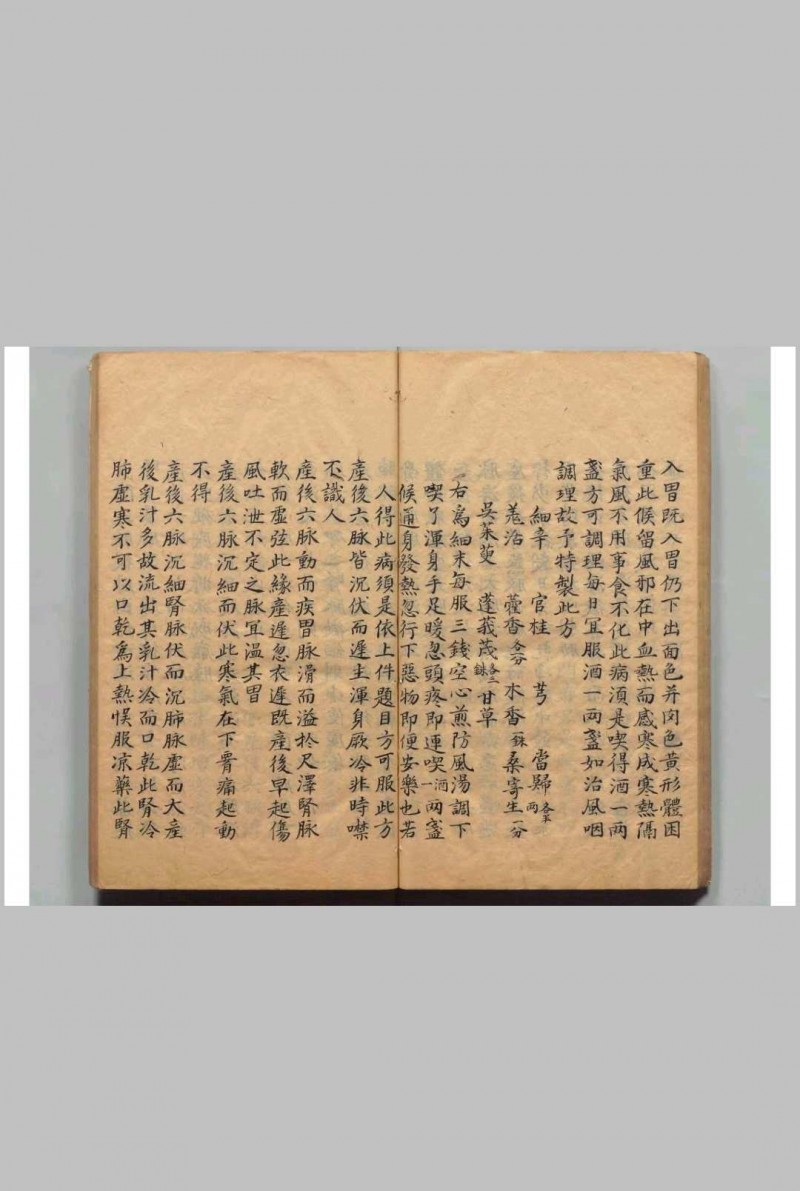 入胃既入胃仍下出面色并肉色黄形體困
重此候留風邪在中血熱而感寒成寒熱隔
氣風不用事食不化此病須是喫得酒一兩
盞方可調理每日宜服酒一兩盞如治風咽
調理故予特製此方
細辛 官桂 芎 當歸各半兩
羗活 藿香 木香一銖 桑寄生一分
吳茱萸 蓬莪茂 甘草
右為細末每服三錢空心煎防風湯調下
喫了渾身手足暖忽頭疼即連喫一酒兩盞
候通身發熱忽行下惡物即便安樂也若
人得此病須是依上件題目方可服此方
產後六脉皆沉伏而遲主渾身厥冷非時噤
不識人
產後六脉動而疾胃脉滑而溢於尺澤腎脉
軟而虛弦此緣產遲忽衣遲既產後早起傷
風吐泄不定之脉宜温其胃
產後六脉沉細而伏此寒氣在下胷痛起動
不得
產後六脉沉細腎脉伏而沉肺脉虛而大產
後乳汁多故流出其乳汁冷而口乾此腎冷
肺虛寒不可以口乾為上熱悮服凉藥此腎